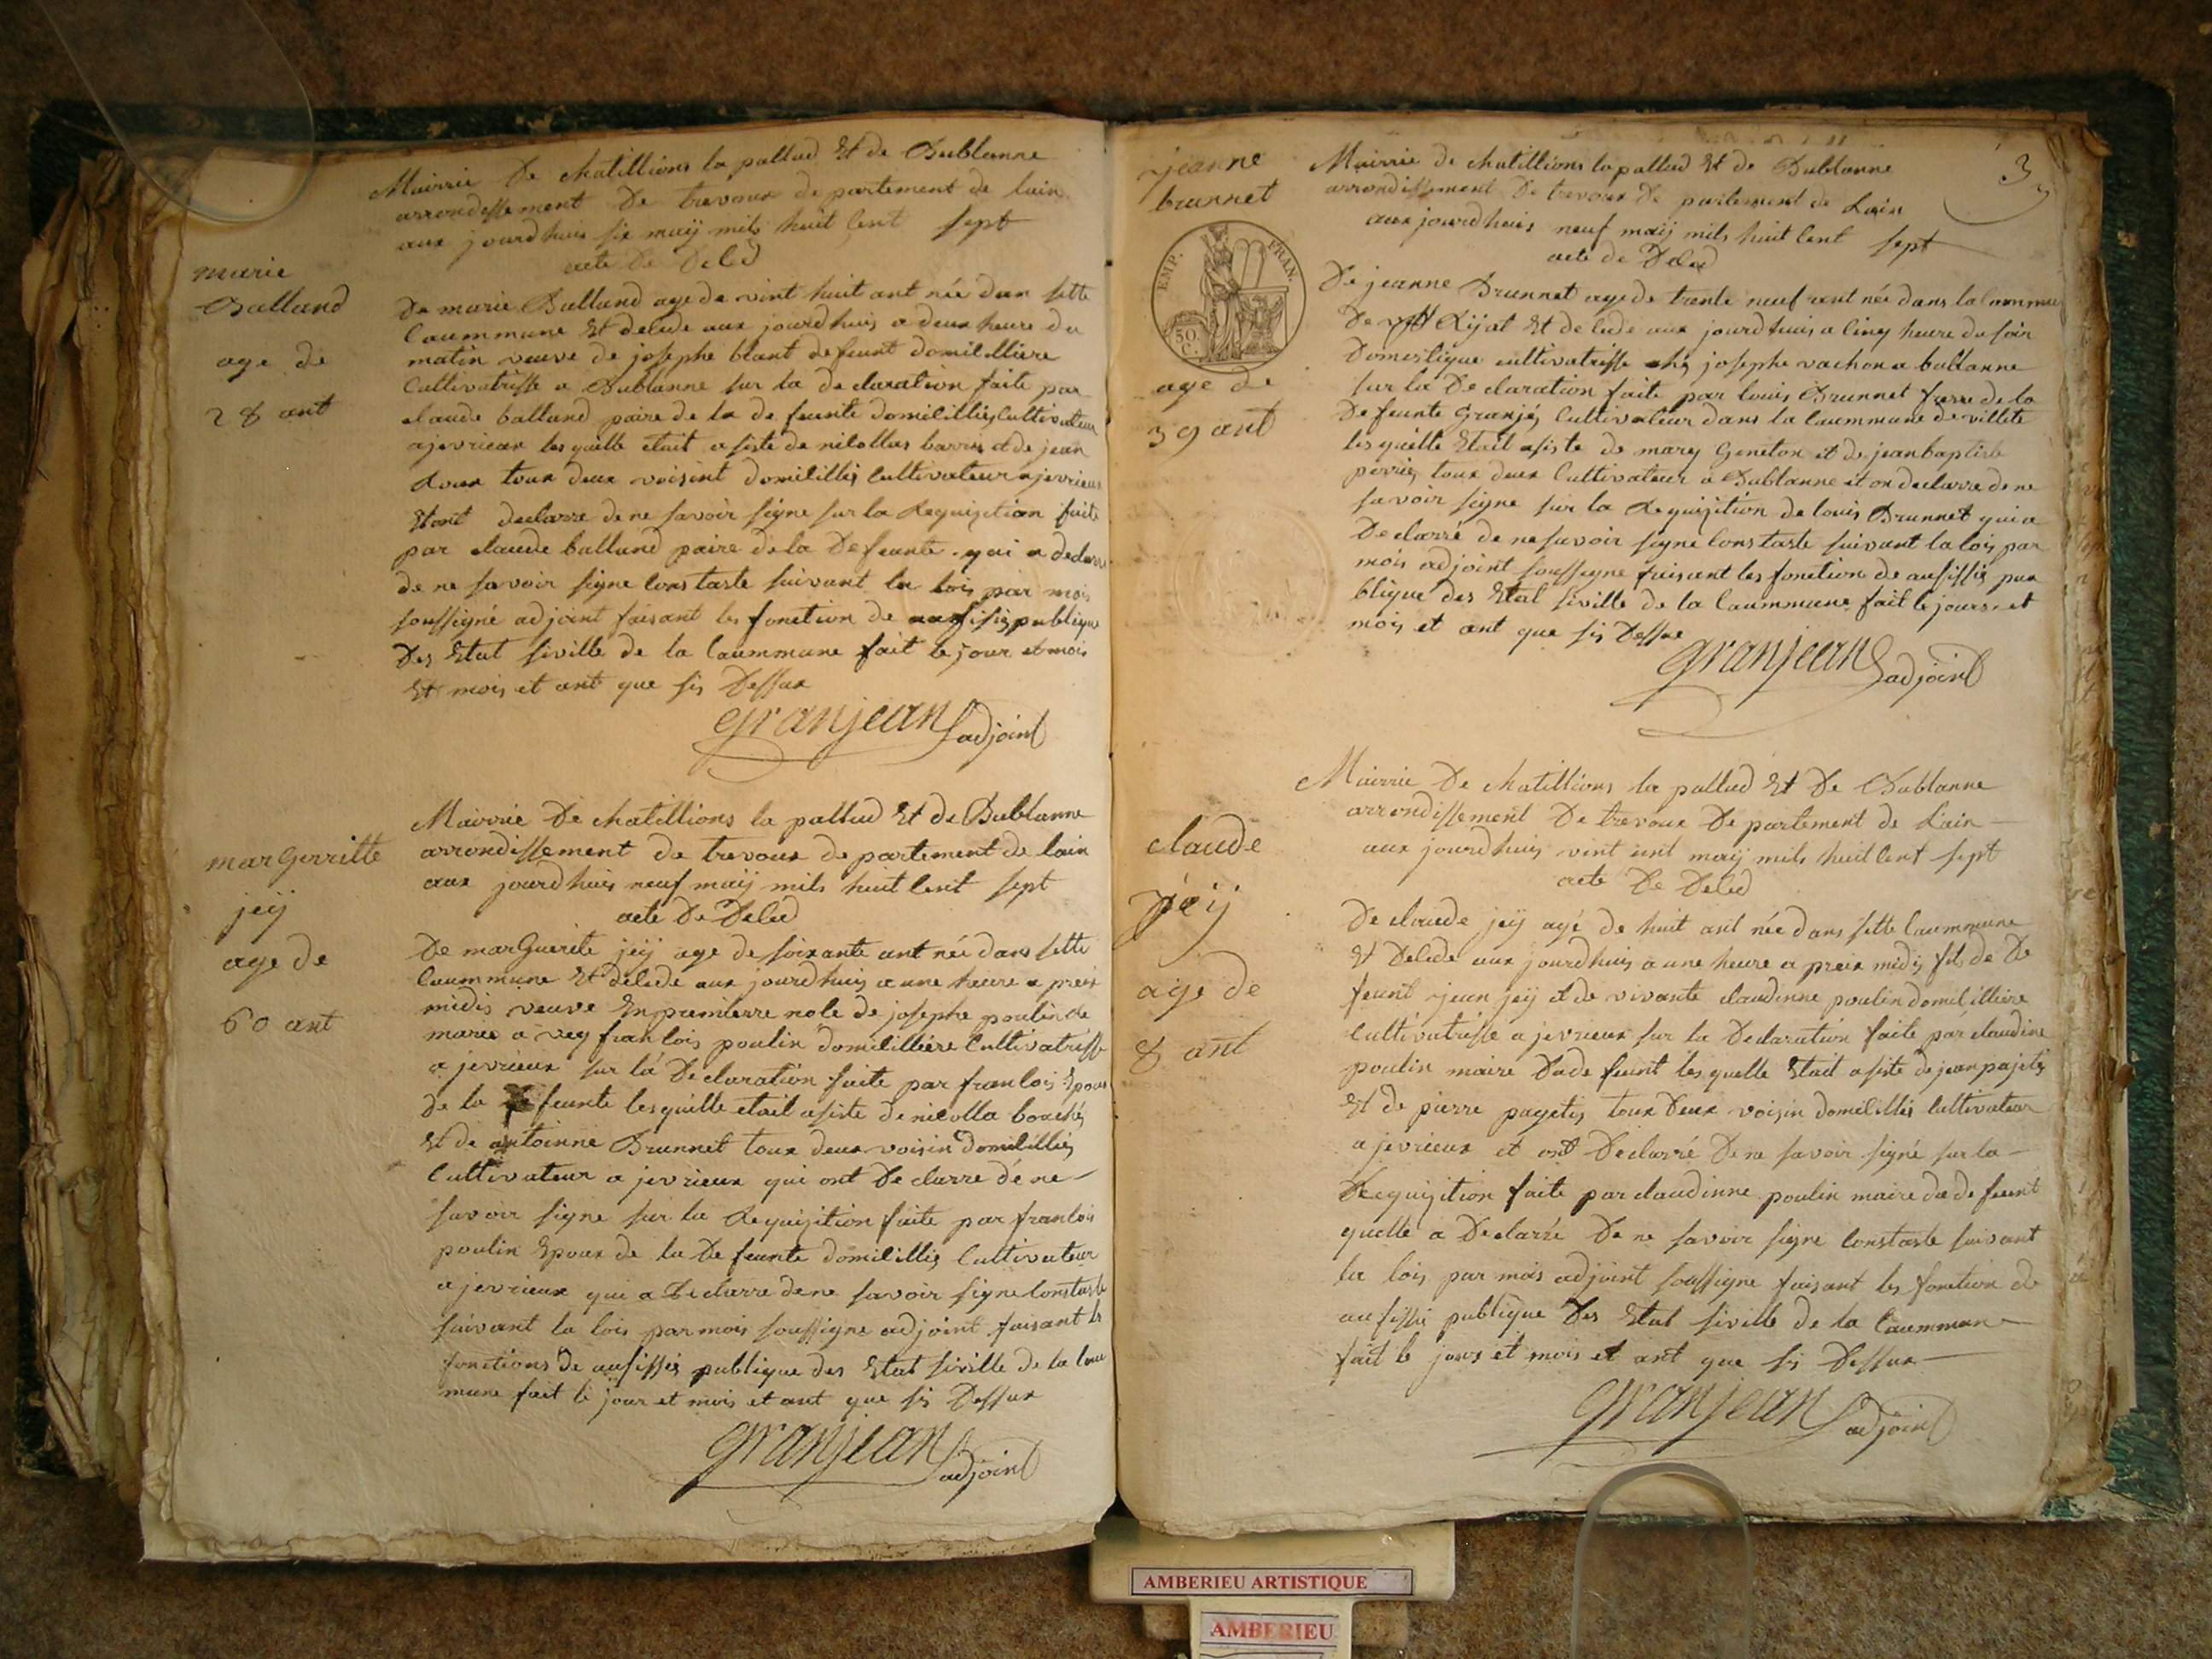 Mairrie De chatillions la pallud Et de Bublanne
arrondissement De trevoux de partement de lain
aux jourdhuis six maÿ mils huit Cent sept
acte De Deled
marie
Balland
age de
28 ant
De marie Balland age de vint huit ant née dan sette
Caummune Et delede aux jourdhuis a deux heure du
matin veuve de josephe blant defeunt domicilliere
Cultivatrisse a Bublanne sur la de claration faite par
claude balland paire de la de feunte domicilliés Cultivateur
a jevrieux les quelle etait asiste de nicollas barris et de jean
Roux toux deux voisint domicilliés Cultivateur a jevrieux
Etont declarre de ne savoir signe sur la Requizition faite
par claude balland paire de la Defeunte qui a declarre
de ne savoir signe Constaste suivant la lois par mois
soussigné adjoint faisant les fonction de aufisiés publique
Des Etat siville de la Caummune fait le jour et mois
Et mois et ant que sis Dessux
granjean adjoint
Mairrie De chatillions la pallud Et de Bublanne
arrondissement de trevoux de partement de lain
aux jourdhuis neuf maÿ mils huit Cent sept
acte De Deled
marGerritte
jeÿ
age de
60 ant
De marGuerite jeÿ age de soixante ant née dans sette
Caummune Et delede aux jourdhuis a une heure a preix
midis veuve En premierre nole de josephe poulin de
maree a vey franCois poulin domicilliere Cultivatrisse
a jevrieux sur la De claration faite par franCois Epoux
de la feunte les quelle etait asiste de nicolla bouchés
Et de antoinne Brunnet toux deux voisin domicilliés
Cultivateur a jevrieux qui ont De clarre de ne
savoir signe sur la Requizition faite par franCois
poulin Epoux de la De feunte domicilliés Cultivateur
a jevrieux qui a De clarre de ne savoir signe Constaste
suivant la lois par mois soussigne adjoint faisant les
fonctions de aufissiés publique des Etat siville de la Cau
mune fait le jour et mois et ant que sis Dessux
granjean adjoint
3
jeanne
brunnet
EMP. FRAN.
50 C.
age de
39 ant
Mairrie de chatillions la pallud Et de Bublanne
arrondissement De trevoux De partement de Lain
aux jourdhuis neuf maÿ mils huit Cent sept
acte de Deled
De jeanne Brunnet age de trente neuf ant née dans la Commune
De Rijat Et de lede aux jourdhuis a Cinq heure du soir
Domestique cultivatrisse chés josephe vachon a bublanne
sur la De claration faite par louis Brunnet frere de la
De feunte Granjés Cultivateur dans la Caummune de villete
les quelle Etait asiste de mary Geneton et de jean baptiste
perriés toux deux Cultivateur a Bublanne et on declarre de ne
savoir signe sur la Requizition de louis Brunnet qui a
Declarré de ne savoir signe Constaste suivant la lois par
mois adjoint soussigne faisant les fonction de aufissiés pu
blique des Etat siville de la Caummune fait le jours et
mois et ant que sis Dessux
granjean adjoint
Mairrie De chatillions la pallud Et De Bublanne
arrondissement De trevoux De partement de Lain
aux jourdhuis vint unt maÿ mils huit Cent sept
acte De Deled
claude
jeÿ
age de
8 ant
De claude jeÿ agé de huit ant née dans sette Caummune
Et Delede aux jourdhuis a une heure a preix midis fils de De
feunt jean jeÿ et de vivante claudinne poulin domicilliere
Cultivatrisse a jevrieux sur la Declaration faite par claudine
poulin maire Du de feunt les quelle Etait asiste de jean pajetis
Et de pierre pagetis toux Deux voisin domicilliés Cultivateur
a jevrieux et ont Declarré De ne savoir signé sur la
Requizition faite par claudinne poulin maire du de feunt
quelle a Declarré De ne savoir signe Constaste suivant
la lois par mois adjoint soussigne faisant les fonction de
aufissié publique Des Etat siville de la Caummune
fait le jours et mois et ant que sis Dessux
granjean adjoint
AMBERIEU ARTISTIQUE
AMBERIEU